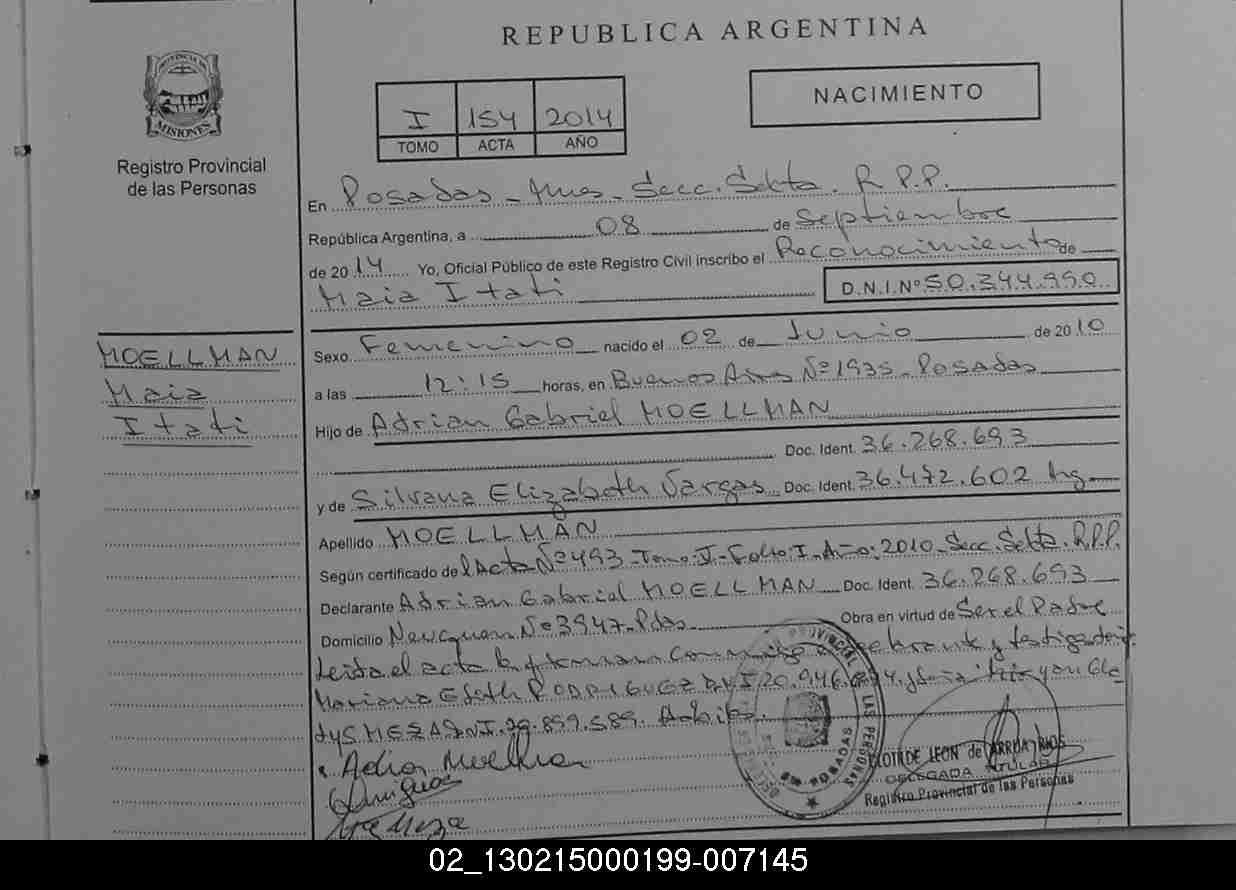 REPUBLICA ARGENTINA
PROVINCIA DE
MISIONES
Registro Provincial
de las Personas
I 154 2014
TOMO ACTA AÑO
NACIMIENTO
En Posadas - Mnes - Secc. Sexta. R.P.P.
República Argentina, a 08 de Septiembre
de 2014 Yo, Oficial Público de este Registro Civil inscribo el Reconocimiento de
Maia Itati D.N.I.Nº 50.344.990
MOELLMAN
Maia
Itati
Sexo Femenino nacido el 02 de Junio de 2010
a las 12:15 horas, en Buenos Aires Nº 1935 - Posadas
Hijo de Adrian Gabriel MOELLMAN
Doc. Ident. 36.268.693
y de Silvana Elizabeth Vargas Doc. Ident. 36.472.602 Arg.
Apellido MOELLMAN
Según certificado del Acta Nº 493 - Tomo - Folio I - Año: 2010 - Secc. Sexta. R.P.P.
Declarante Adrian Gabriel MOELLMAN Doc. Ident. 36.268.693
Domicilio Neuquen Nº 3947 - Pdas. Obra en virtud de Ser el Padre
Leida el acta la firman conmigo el y testigos
Mariana Edith RODRIGUEZ D.N.I. 20.946. y Miryan Gla
dys MEZA D.N.I. 899.589.
Adrian Moellman
Meza
PROVINCIAL
LAS PERSONAS
POSADAS
CLOTILDE LEON de ARRUA RIOS
DELEGADA TITULAR
Registro Provincial de las Personas
02_130215000199-007145